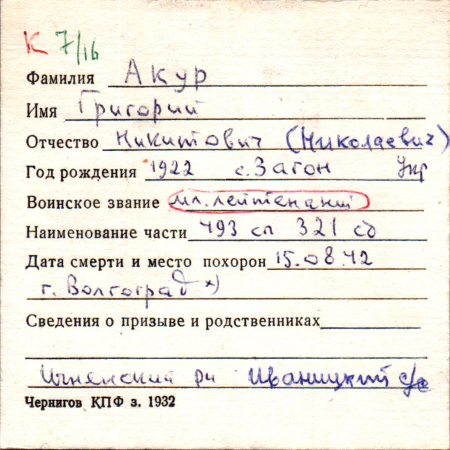 К 7/16
Фамилия Акур
Имя Григорий
Отчество Никитович (Николаевич)
Год рождения 1922 с. Загон Укр
Воинское звание мл. лейтенант
Наименование части 493 сп 321 сд
Дата смерти и место похорон 15.08.42
г. Волгоград *)
Сведения о призыве и родственниках
Ичнянский рн Иваницкий с/с
Чернигов КПФ з. 1932